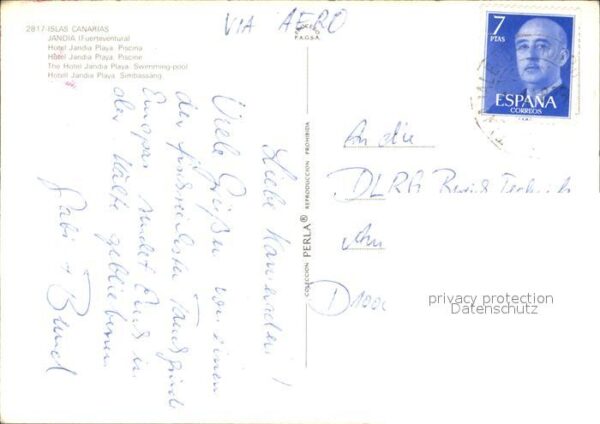 VIA AERO
2817-ISLAS CANARIAS
JANDIA (Fuerteventura)
Hotel Jandia Playa. Piscina
Hotel Jandia Playa. Piscine
The Hotel Jandia Playa. Swimming-pool
Hotel Jandia Playa. Simbassäng
F.A.G.S.A.
7
PTAS
ESPAÑA
CORREOS
Liebe Kameraden!
Viele Grüße von einem
der
Europas sendet Euch in
der Kälte gebliebenen
Gabi + Bernd
COLECCION PERLA® REPRODUCCION PROHIBIDA
An die
DLRG
Am
D 1000
privacy protection
Datenschutz